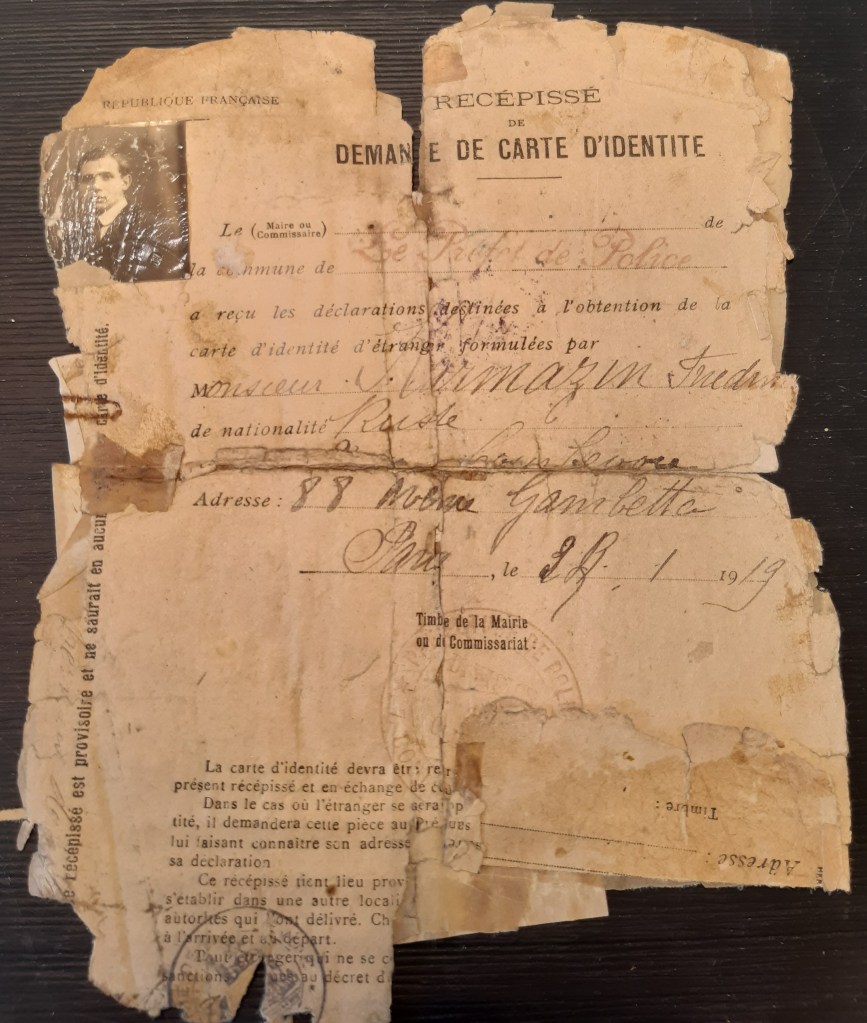 RÉPUBLIQUE FRANÇAISE
RECÉPISSÉ
DE
DEMAN E DE CARTE D'IDENTITE
Le (Maire ou Commissaire) de
la commune de Le Préfet de Police
a reçu les déclarations destinées à l'obtention de la
carte d'identité d'étranger formulées par
Monsieur
de nationalité Russe
Adresse : 88 Avenue Gambetta
Paris, le 1 1919
Timbe de la Mairie
ou d Commissariat :
La carte d'identité devra être re
présent récépissé et en échange de c
Dans le cas où l'étranger se serai
tité, il demandera cette pièce au
lui faisant connaître son adresse
sa declaration
Ce récépissé tient lieu prov
s'établir dans une autre locali
autorités qui l'ont délivré. Ch
à l'arrivée et au départ.
Tout étranger qui ne se c
sanctions au décret d
e récépissé est provisoire et ne saurait en aucu carte d'identité.
Timbre :
Adresse :